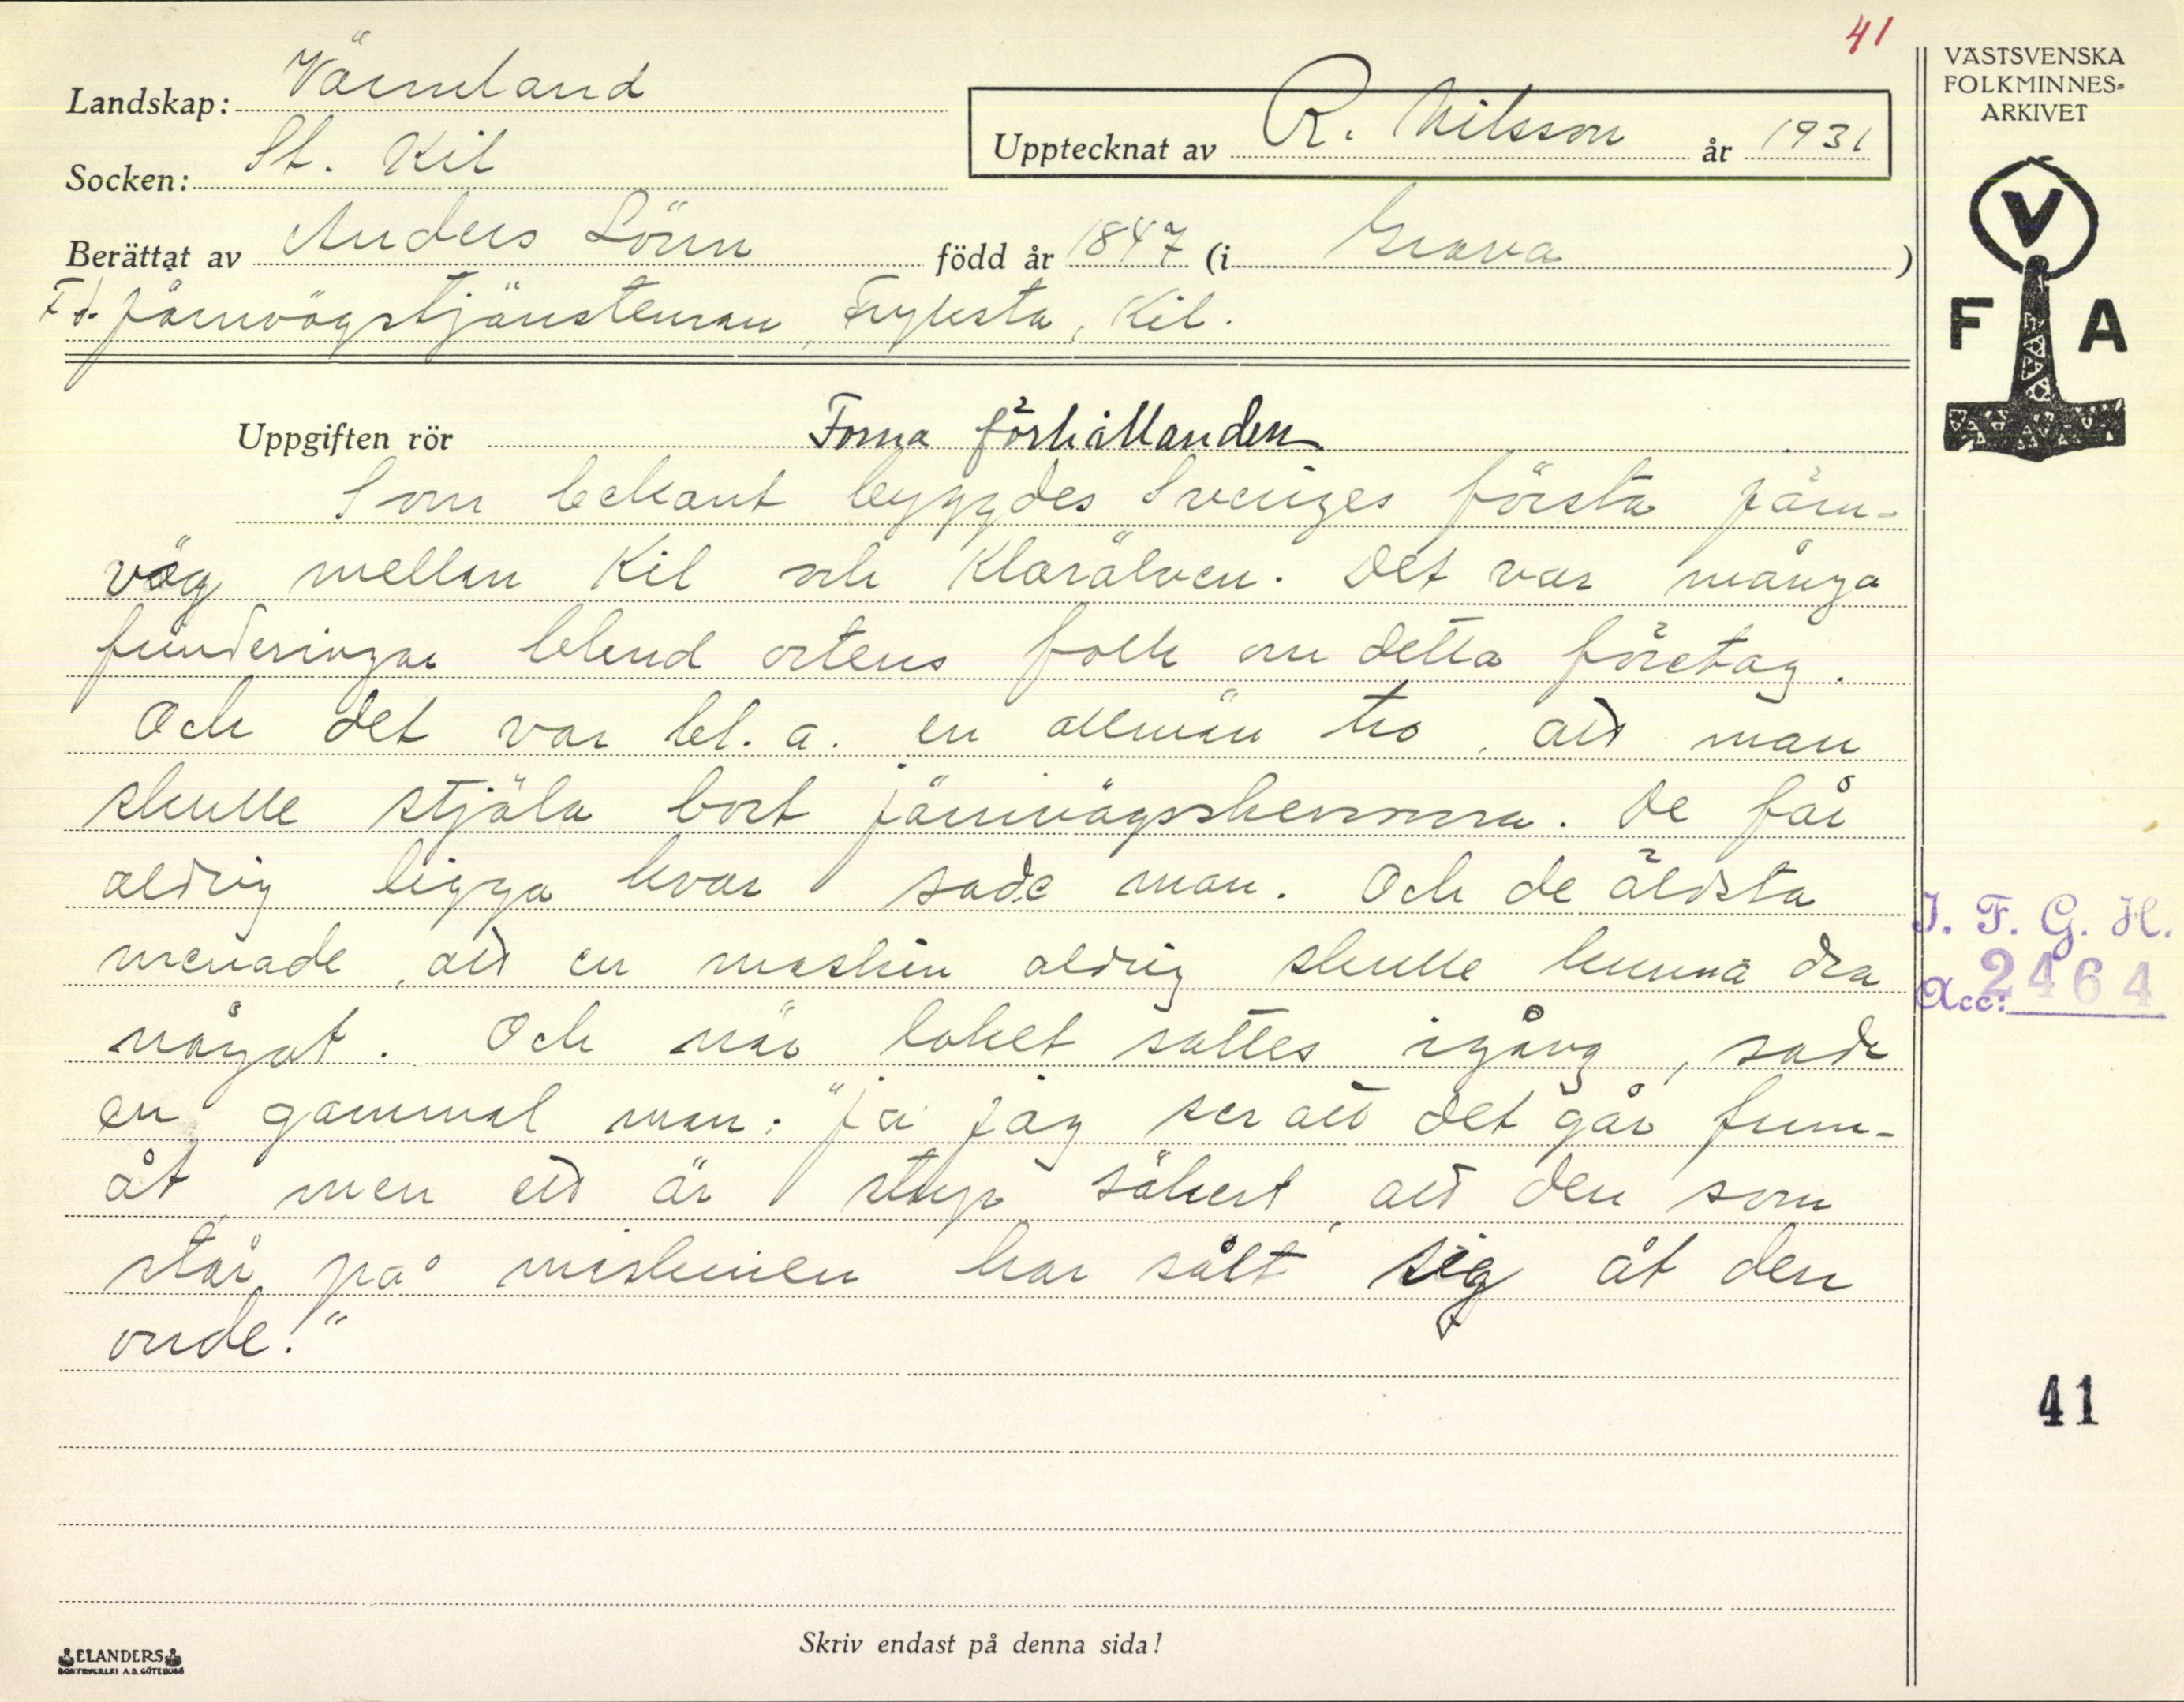 41
VÄSTSVENSKA
FOLKMINNES-
ARKIVET
Landskap: Värmland
Upptecknat av R. Nilsson år 1931
Socken: St. Kil
Berättat av Anders Lönn född år 1847 (i Grava)
F.d. järnvägstjänsteman, Fryksta, Kil.
V
F A
Uppgiften rör Forna förhållanden
Som bekant byggdes Sveriges första järn-
väg mellan Kil och Klarälven. Det var många
funderingar bland ortens folk om detta företag.
Och det var bl. a. en allmän tro, att man
skulle stjäla bort järnvägsskenorna. De får
aldrig ligga kvar sade man. Och de äldsta
menade, att en maskin aldrig skulle kunna dra
något. Och när loket sattes igång, sade
en gammal man: "Ja jag ser att det går fram-
åt men ett är säkert, att den som
står på maskinen har sålt sig åt den
onde."
I. F. G. H.
Acc: 2464
41
Skriv endast på denna sida!
ELANDERS
BOKTRYCKERI A.B. GÖTEBORG